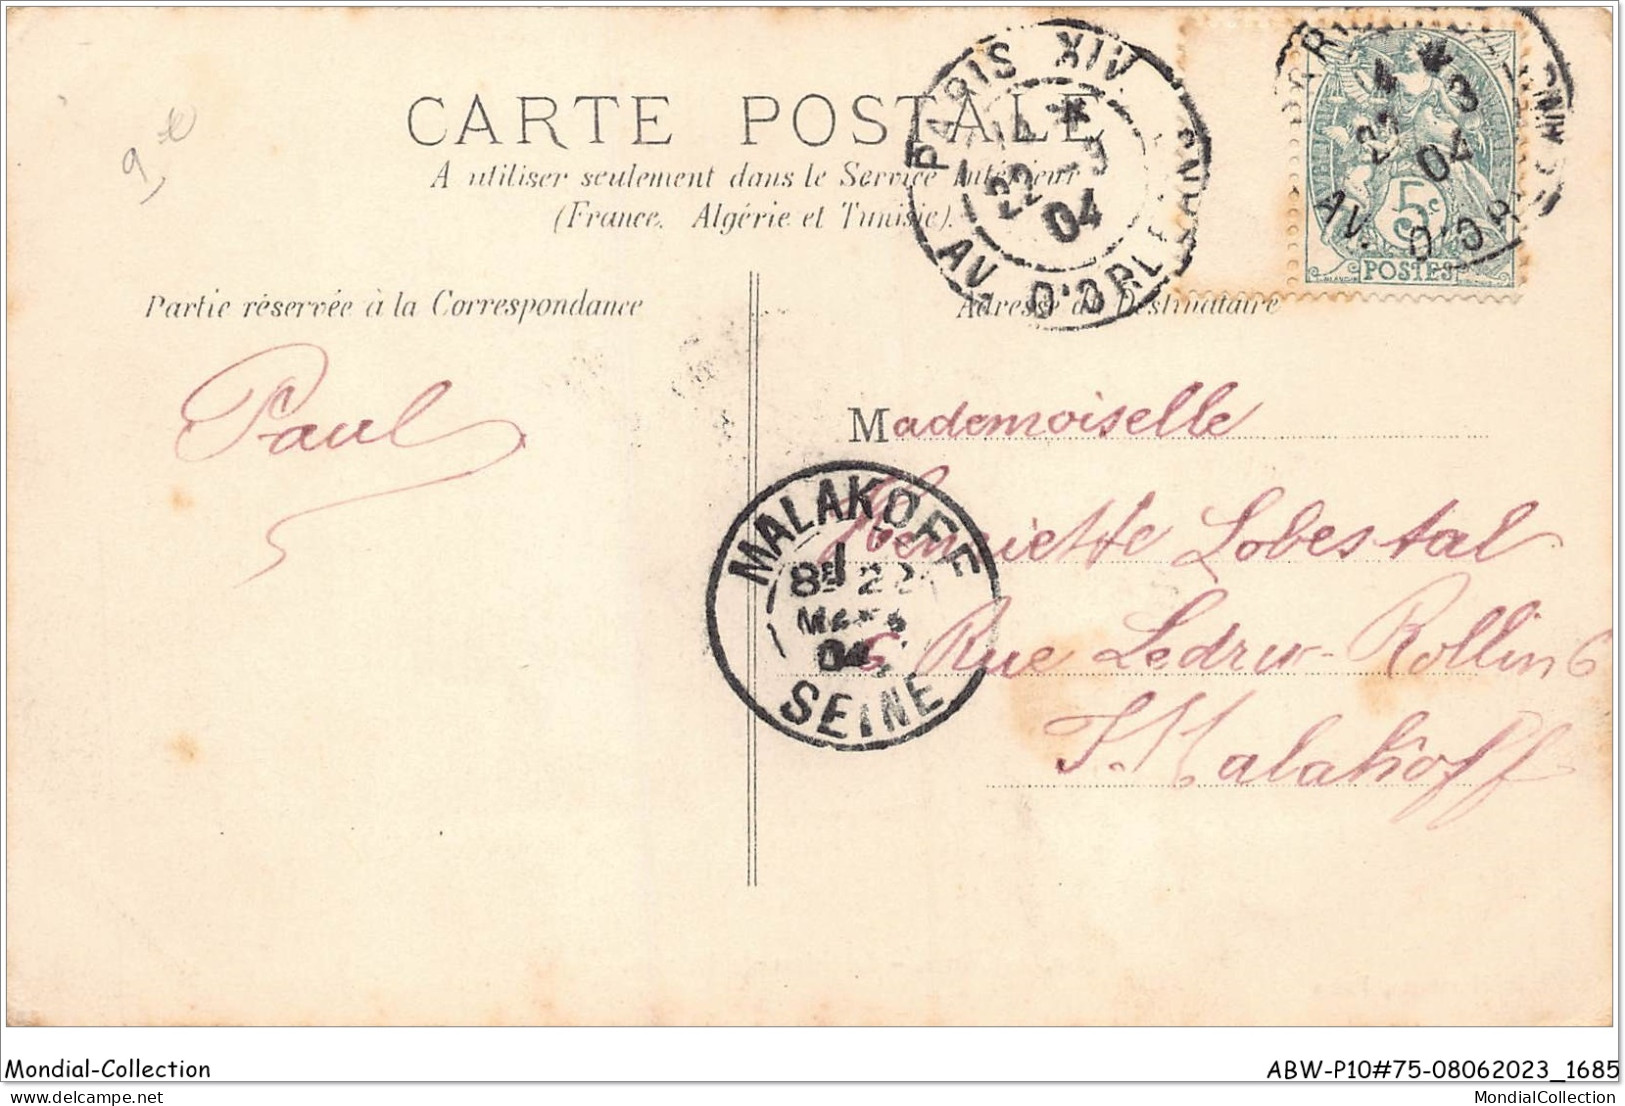 CARTE POSTALE
A utiliser seulement dans le Service Intérieur
(France, Algérie et Tunisie).
Partie réservée à la Correspondance
Adresse du Destinataire
PARIS XIV
22 - 3
04
AV. D'ORLEANS
4 3
22
04
AV. D'OR
5c
POSTES
Paul
Mademoiselle
Henriette Lobestal
6 Rue Ledru-Rollin 6
Malakoff
MALAKOFF
8E 22
MARS
04
SEINE
Mondial-Collection
ABW-P10#75-08062023_1685
MondialCollection